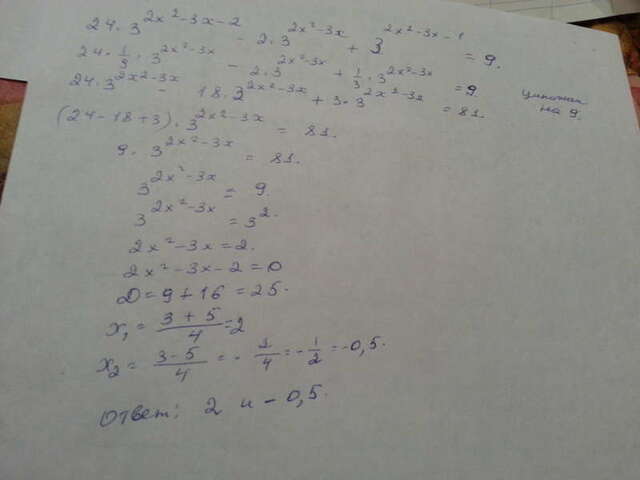 24·3^(2x²-3x-2) - 2·3^(2x²-3x) + 3^(2x²-3x-1) = 9.
24·1/9·3^(2x²-3x) - 2·3^(2x²-3x) + 1/3·3^(2x²-3x) = 9
24·3^(2x²-3x) - 18·3^(2x²-3x) + 3·3^(2x²-3x) = 81.
на 9.
(24-18+3)·3^(2x²-3x) = 81.
9·3^(2x²-3x) = 81.
3^(2x²-3x) = 9.
3^(2x²-3x) = 3².
2x²-3x=2.
2x²-3x-2=0
D=9+16=25.
x₁=(3+5)/4=2
x₂=(3-5)/4=-2/4=-1/2=-0,5.
Ответ: 2 и -0,5.